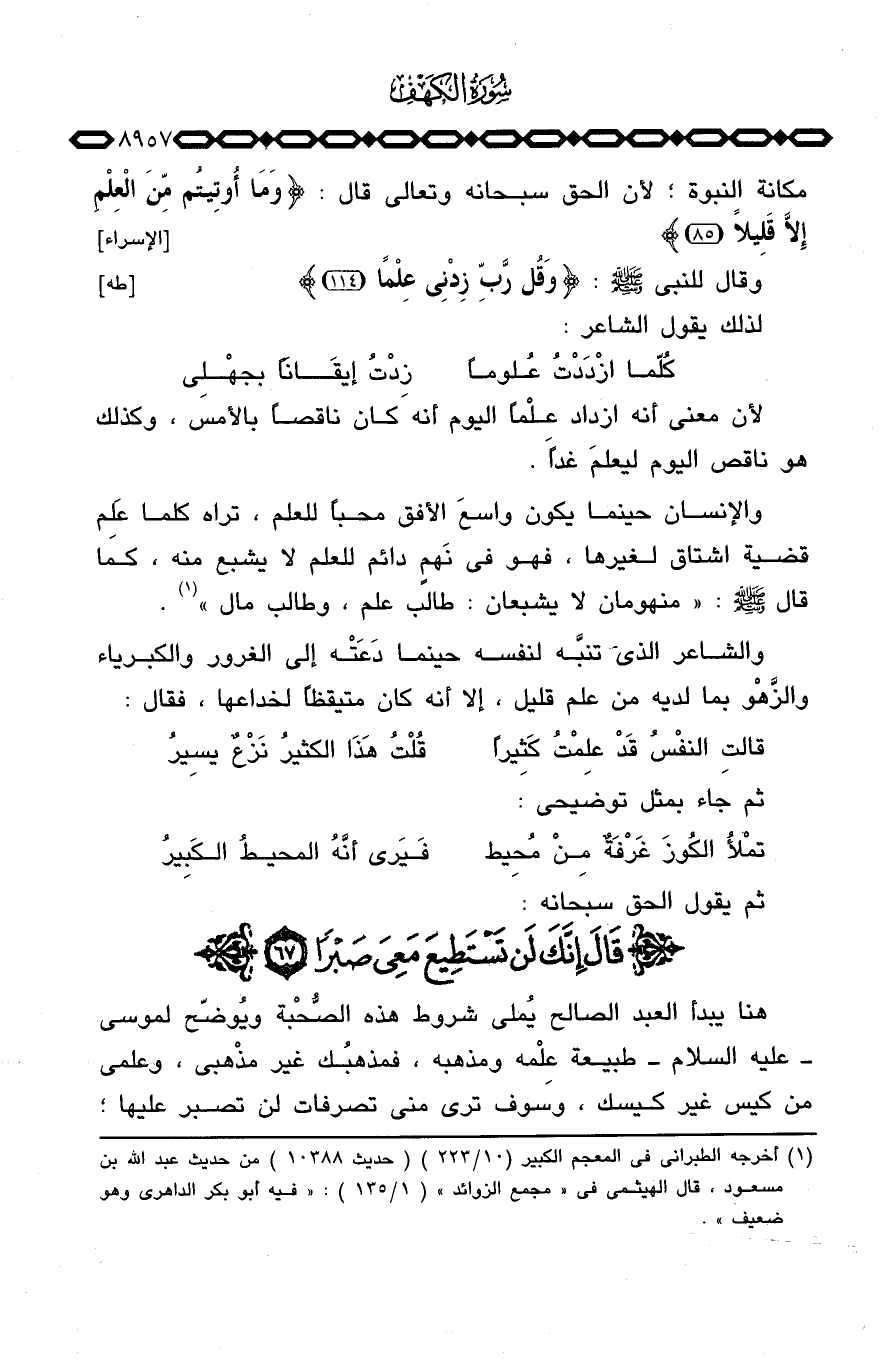 سُورَةُ الكَهْفِ
٨٩٥٧
مكانة النبوة ؛ لأن الحق سبحانه وتعالى قال : ﴿ وَمَا أُوتِيتُم مِّنَ الْعِلْمِ
إِلاَّ قَلِيلاً (٨٥) ﴾ [الإسراء]
وقال للنبى ﷺ : ﴿ وَقُل رَّبِّ زِدْنِى عِلْمًا (١١٤) ﴾ [طه]
لذلك يقول الشاعر :
كُلَّمـا ازْدَدْتُ عُـلوماً زِدْتُ إيقَـانـاً بجهْـلِى
لأن معنى أنه ازداد عـلْماً اليوم أنه كـان ناقصـاً بالأمس ، وكذلك
هو ناقص اليوم ليعلمَ غداً .
والإنسـان حينمـا يكون واسعَ الأفق محـباً للعلم ، تراه كلمـا علِم
قضـية اشتاق لـغيرها ، فهـو فى نَهمٍ دائم للعلم لا يشبع منه ، كـما
قال ﷺ : « منهومان لا يشبعان : طالب علم ، وطالب مال »(١) .
والشـاعر الذى تنبَّه لنفسـه حينمـا دَعَتْـه إلى الغرور والكبـرياء
والزَّهْو بما لديه من علم قليل ، إلا أنه كان متيقظاً لخداعها ، فقال :
قالتِ النفْسُ قَدْ علِمْتُ كَثِيراً قُلْتُ هَذَا الكثيرُ نَزْعٌ يسِيرُ
ثم جاء بمثل توضيحى :
تمْلأُ الكُوزَ غَرْفَةٌ مِـنْ مُحِيط فَـيَرَى أنَّهُ المحيـطُ الـكَبِيرُ
ثم يقول الحق سبحانه :
﴿ قَالَ إِنَّكَ لَن تَسْتَطِيعَ مَعِىَ صَبْرًا ٦٧ ﴾
هنا يبدأ العبد الصالح يُملى شروط هذه الصُّحْبة ويُوضّح لموسى
ـ عليه السلام ـ طبيعة علْمِه ومذهبه ، فمذهبُـك غير مذْهبى ، وعلمى
من كيس غير كـيسك ، وسوف ترى منى تصرفات لن تصـبر عليها ؛
(١) أخرجه الطبرانى فى المعجم الكبير (١٠/٢٢٣ ) ( حديث ١٠٣٨٨ ) من حديث عبد الله بن
مسعـود ، قال الهيثـمى فى « مجمع الزوائد » ( ١/١٣٥ ) : « فـيه أبو بكر الداهرى وهو
ضعيف » .